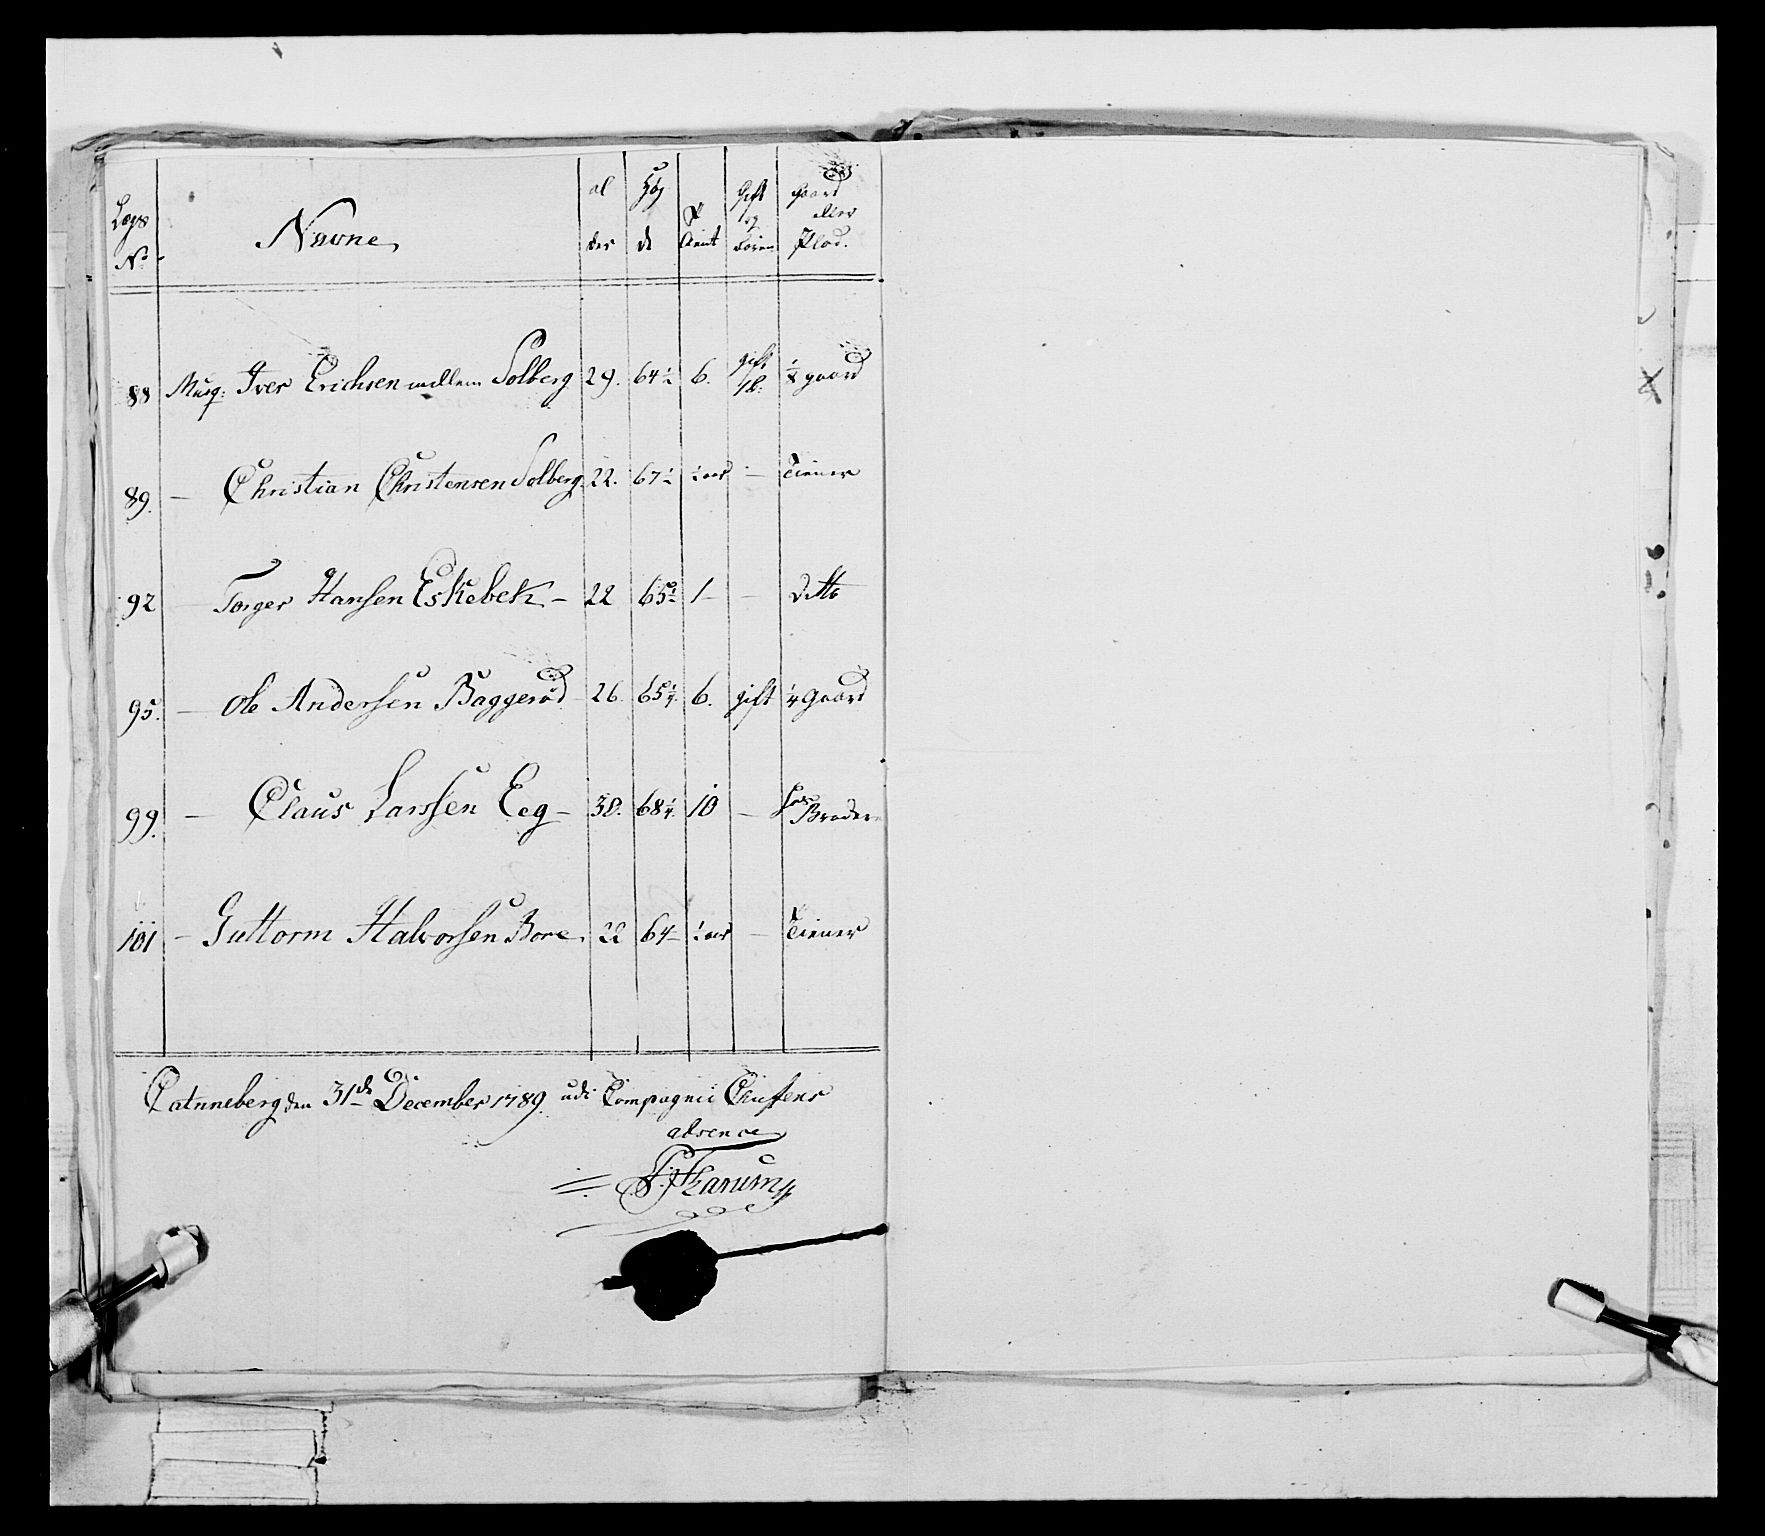 Legs No | Navne | al der | Høy de | Tient | Gift og børn | Gaard eller Plads
88 Musq: Iver Erichsen mellem Solberg 29. 64½ 6. gift 1 b: ½ gaard
89. — Christian Christensen Solberg 22. 67½ ½ aar — Tiener
92 — Torger Hansen Eskebek — 22 65½ 1 — — Ditto
95. — Ole Andersen Baggerød 26 65¼ 6. gift ¼ gaard
99. — Claus Larssen Eeg — 38. 68¼. 10 — hos Broder
101 — Guttorm Halvorsen Bore. 22 64 — ½ aar — Tiener
den 31de December 1789. udi Compagnii Chefens
absence